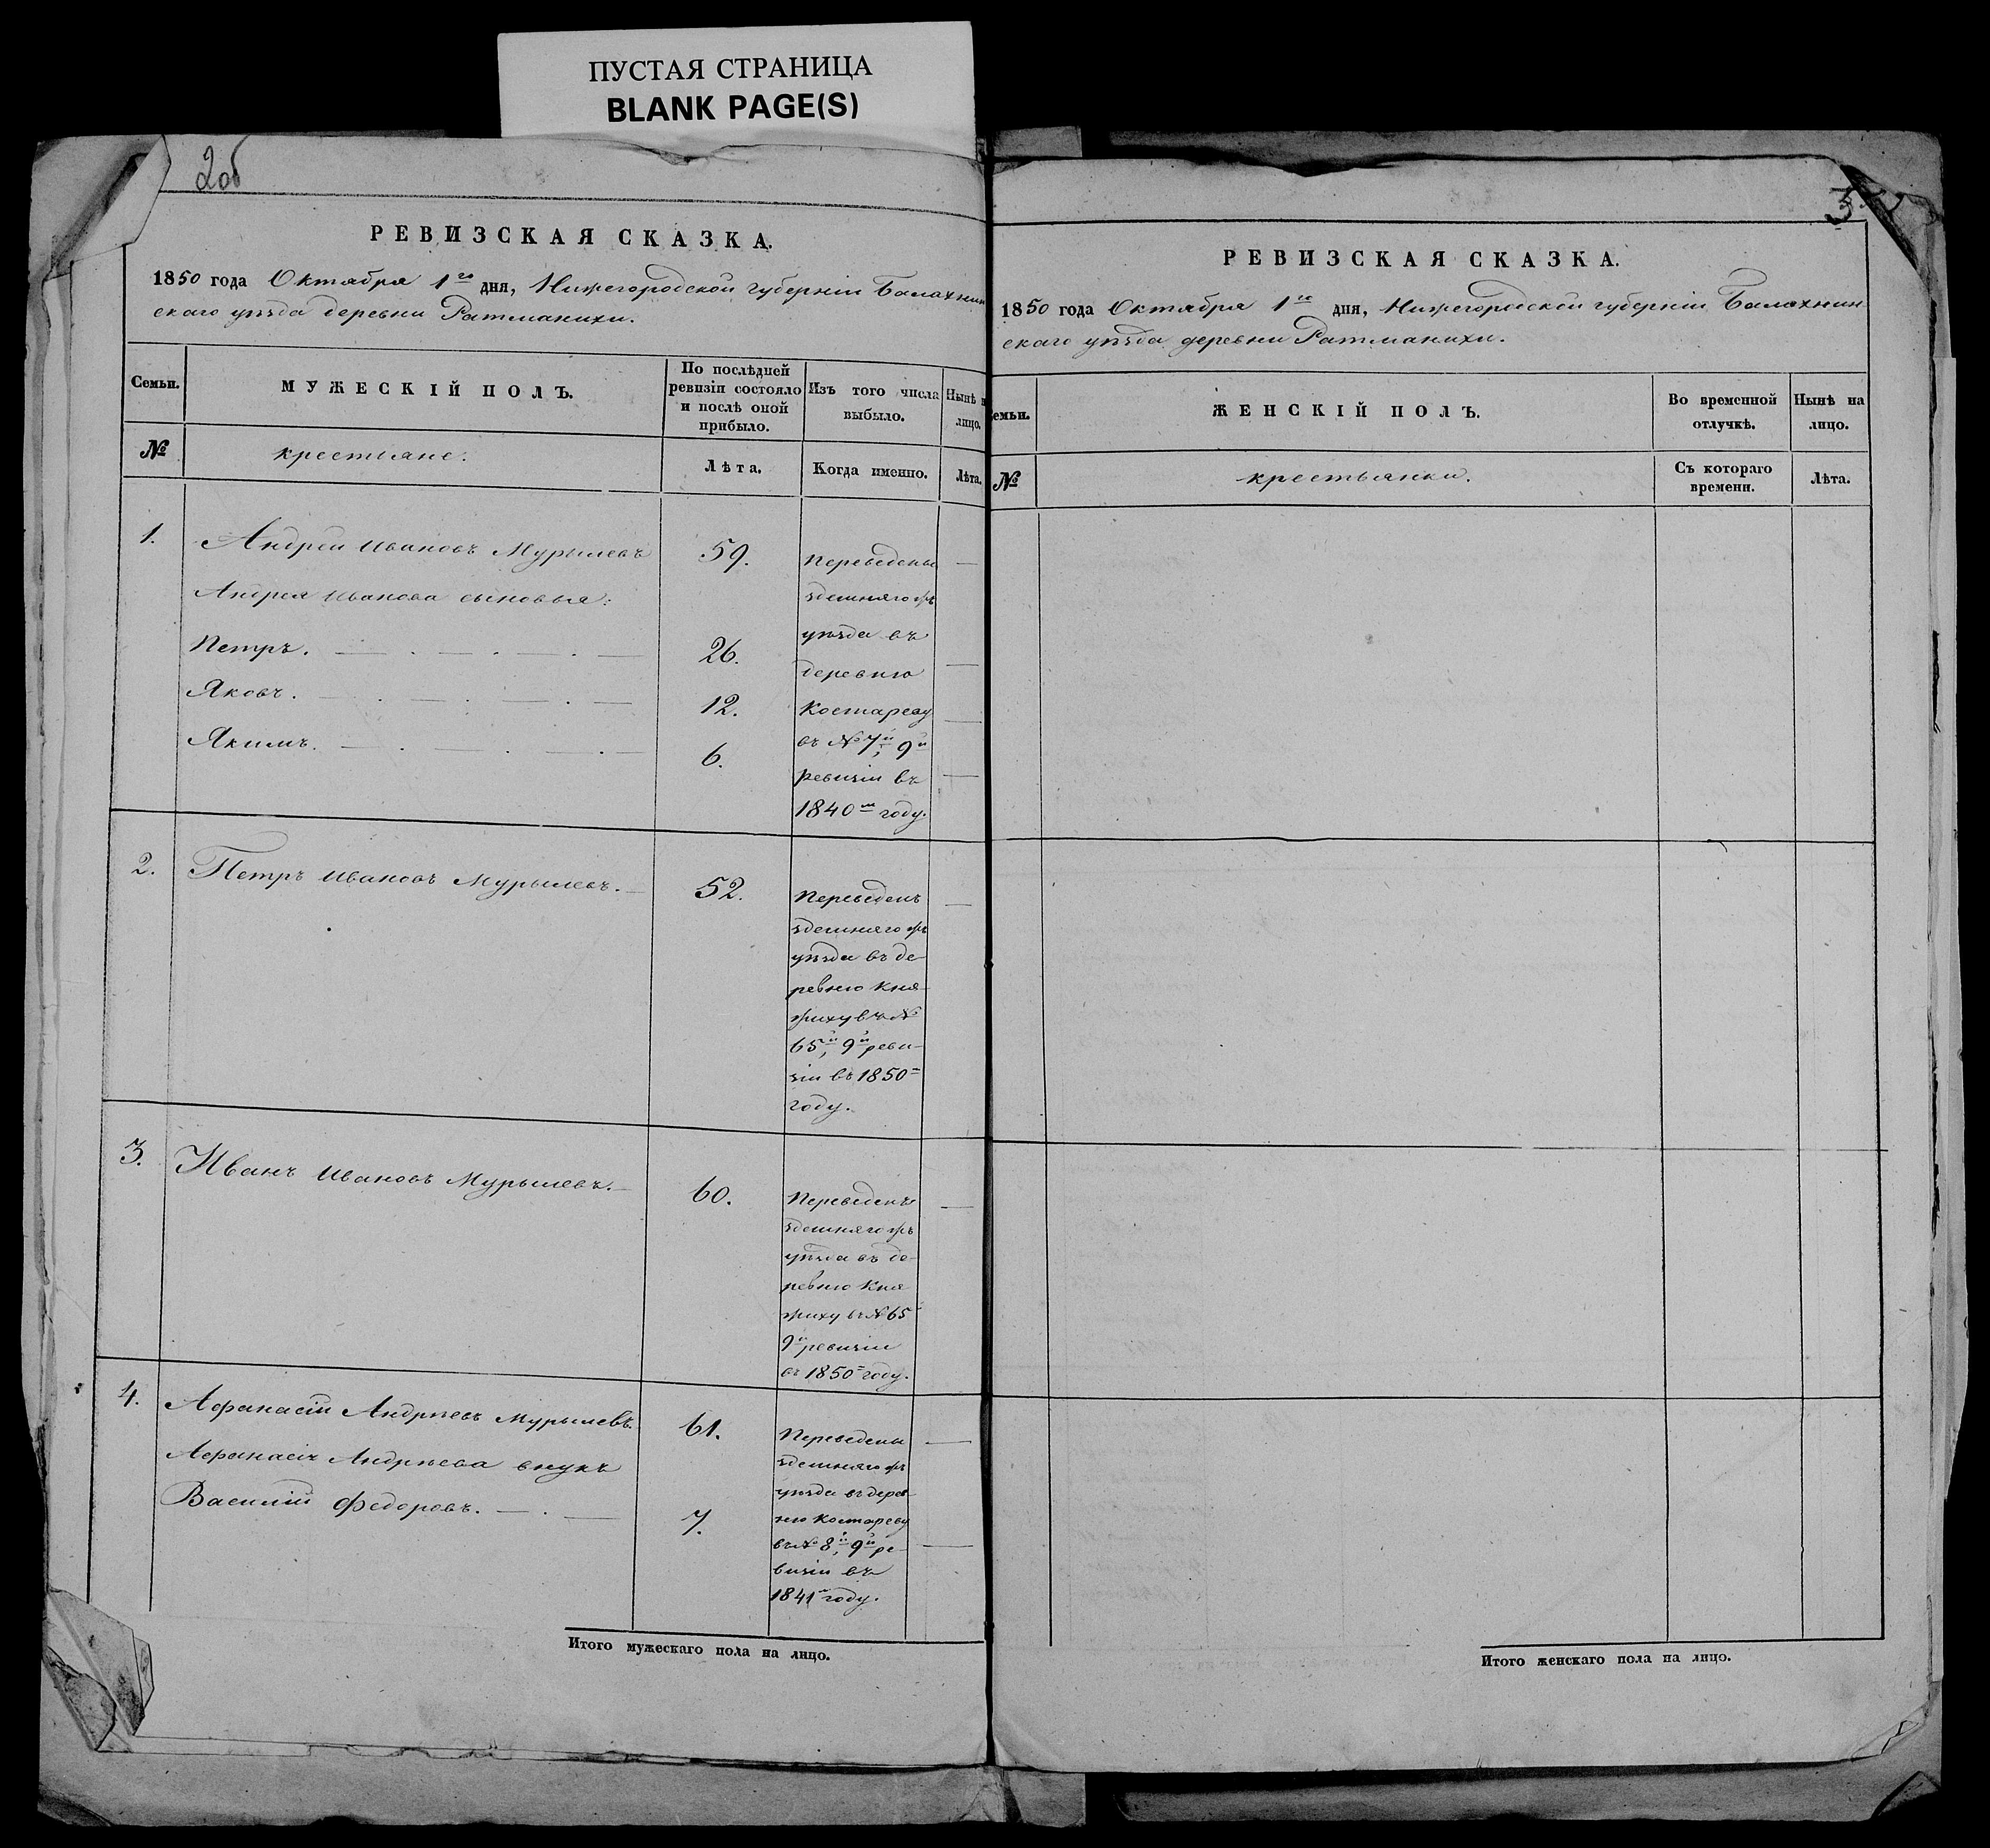 ПУСТАЯ СТРАНИЦА
BLANK PAGE(S)
2об
РЕВИЗСКАЯ СКАЗКА.
1850 года Октября 1го дня, Нижегородской губерніи Балахнин
скаго уѣзда деревни Ратманихи.
Семьи.
МУЖЕСКІЙ ПОЛЪ.
По послѣдней
ревизіи состояло
и послѣ оной
прибыло.
Изъ того числа
выбыло.
Нынѣ н
лицо.
№
крестьяне.
Лѣта.
Когда именно.
Лѣта.
1.
Андрей Ивановъ Мурылевъ
59.
Андрея Иванова сыновья:
Петръ.
26.
Яковъ.
12.
Якимъ.
6.
Переведены
здешняго жъ
уѣзда въ
деревню
Костареву
въ № 7й, 9й
ревизіи въ
1840м году.
2.
Петръ Ивановъ Мурылевъ.
52.
Переведенъ
здешняго жъ
уѣзда въ де-
ревню Кня-
жиху въ №
65й, 9й реви-
зіи въ 1850=
году.
3.
Иванъ Ивановъ Мурылевъ.
60.
Переведенъ
здешняго жъ
уѣзда въ де-
ревню Кня
жиху въ № 65
9й ревизіи
въ 1850= году.
4.
Афанасій Андрѣевъ Мурылевъ.
61.
Афанасія Андрѣева внукъ
Василій Федоровъ.
7.
Переведены
здешняго жъ
уѣзда въ дерев-
ню Костареву
въ № 8й, 9й ре-
визіи въ
1841м году.
Итого мужескаго пола на лицо.
3
РЕВИЗСКАЯ СКАЗКА.
1850 года Октября 1го дня, Нижегородской губерніи Балахнин
скаго уѣзда деревни Ратманихи.
емьи.
ЖЕНСКІЙ ПОЛЪ.
Во временной
отлучкѣ.
Нынѣ на
лицо.
№
крестьянки.
Съ котораго
времени.
Лѣта.
Итого женскаго пола на лицо.